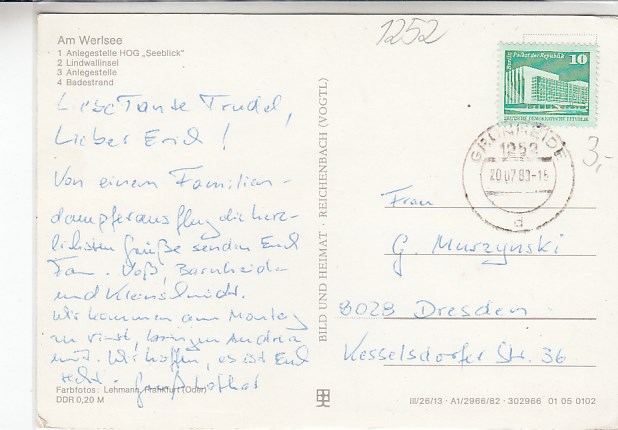 Am Werlsee
1 Anlegestelle HOG „Seeblick"
2 Lindwallinsel
3 Anlegestelle
4 Badestrand
1252
Liebe Tante Trudel,
Lieber Erich!
Von einem Familien-
dampferausflug die herz-
lichsten Grüße senden Euch
Fam. Voß,
und
Wir kommen am Montag
zu, bringen Andrea
mit. Wir hoffen, es ist Euch
recht. Gruß Lothar
Farbfotos: Lehmann, Frankfurt (Oder)
DDR 0,20 M
BILD UND HEIMAT · REICHENBACH (VOGTL)
Palast der Republik
10
DEUTSCHE DEMOKRATISCHE REPUBLIK
GRÜNHEIDE
1252
20.07.83-15
d
3,-
Frau
G. Murzynski
8028 Dresden
Kesselsdorfer Str. 36
III/26/13 · A1/2966/82 · 302966 01 05 0102